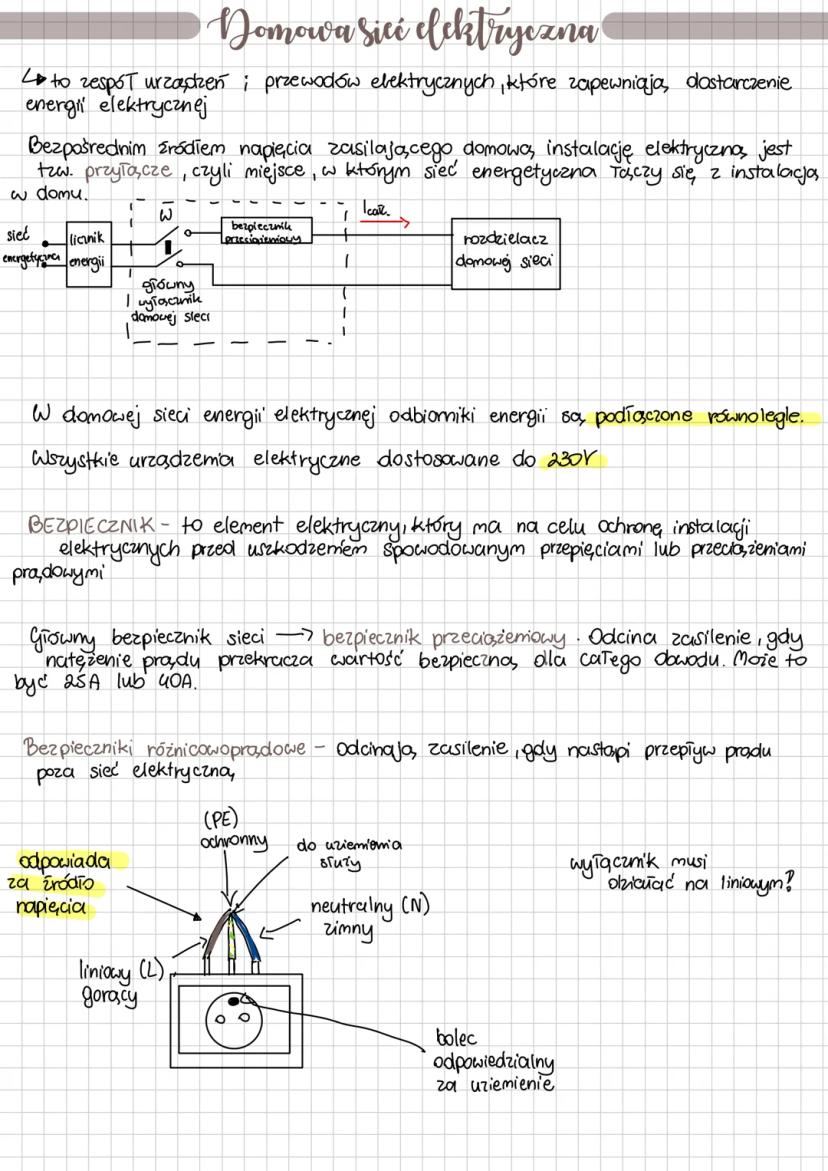 Domowa sieć elektryczna
↳ to zespół urządzeń i przewodów elektrycznych, które zapewniają dostarczenie
energii elektrycznej
Bezpośrednim źródłem napięcia zasilającego domową instalację elektryczną jest
tzw. przyłącze, czyli miejsce, w którym sieć energetyczna łączy się z instalacją
w domu.
sieć
energetyczna
licznik
energii
W
główny
wyłącznik
domowej sieci
bezpiecznik
przeciążeniowy
Icałk.
rozdzielacz
domowej sieci
W domowej sieci energii elektrycznej odbiorniki energii są podłączone równolegle.
Wszystkie urządzenia elektryczne dostosowane do 230V
BEZPIECZNIK - to element elektryczny, który ma na celu ochronę instalacji
elektrycznych przed uszkodzeniem spowodowanym przepięciami lub przeciążeniami
prądowymi
Główny bezpiecznik sieci → bezpiecznik przeciążeniowy. Odcina zasilenie, gdy
natężenie prądu przekracza wartość bezpieczną dla całego obwodu. Może to
być 25A lub 40A.
Bezpieczniki różnicowoprądowe - odcinają zasilenie, gdy nastąpi przepływ prądu
poza sieć elektryczną
(PE)
ochronny
do uziemienia
służy
odpowiada
za źródło
napięcia
neutralny (N)
zimny
liniowy (L)
gorący
wyłącznik musi
działać na liniowym?
bolec
odpowiedzialny
za uziemienie